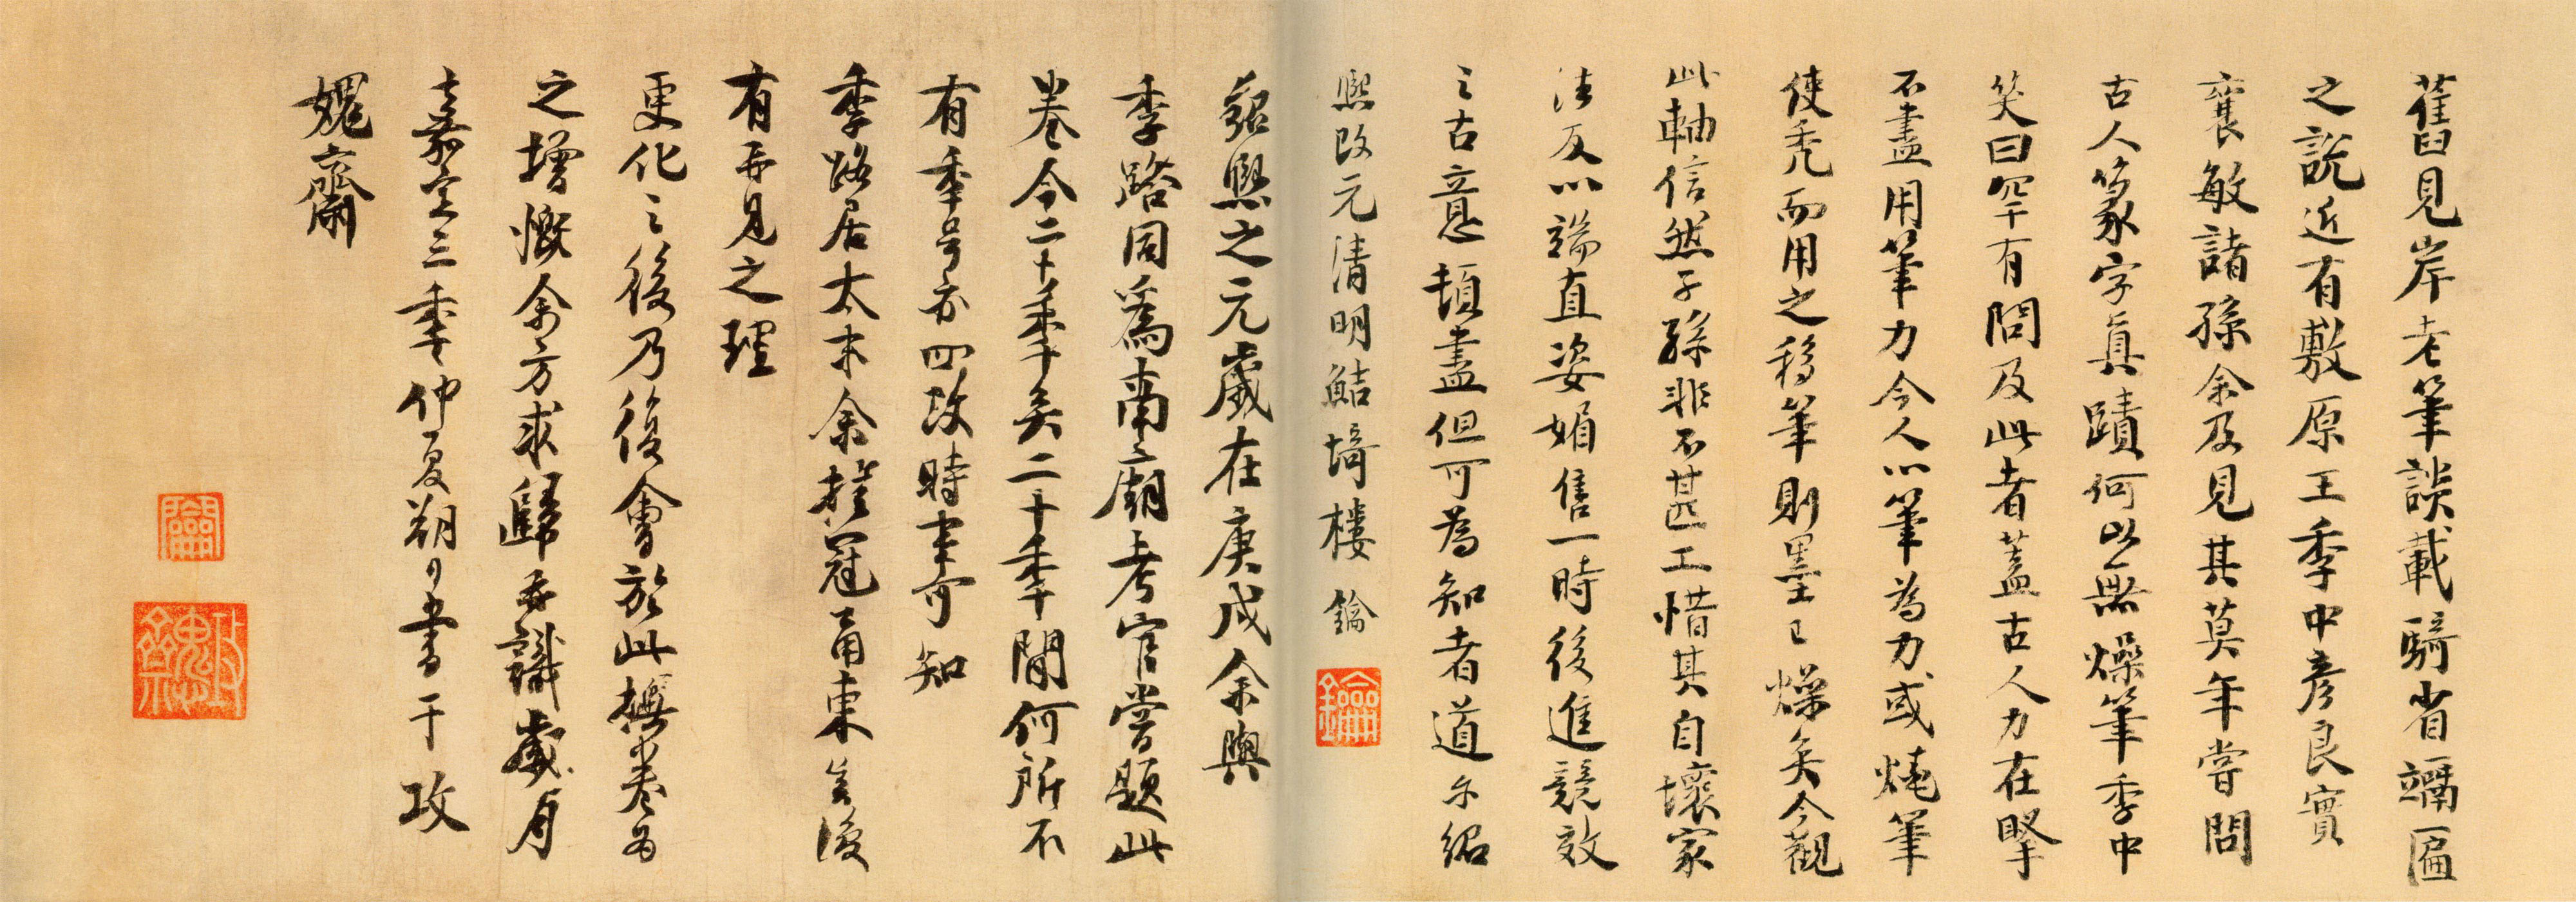 舊見岸老筆談載騎省竵匾
之説近有敷原王季中彦良實
襄敏諸孫余及見其莫年嘗問
古人篆字真蹟何以無燥筆季中
笑曰罕有問及此者蓋古人力在腕
不盡用筆力今人以筆為力或燒筆
使秃而用之移筆則墨已燥矣今觀
此軸信然子孫非不甚工惜其自壞家
法反以端直姿媚售一時後進競效
之古意頓盡但可為知者道尔紹
熙改元清明鮚埼樓鑰
鑰
紹熙之元歲在庚戌余與
季路同爲南廟考官嘗題此
卷今二十季矣二十季間何所不
有季号亦四改時事可知
季路居太末余挂冠甬東豈復
有再見之理
更化之後乃復會於此撫卷為
之增慨余方求歸再識歲月
嘉定三季仲夏朔日書于攻
媿齋
攻媿齋